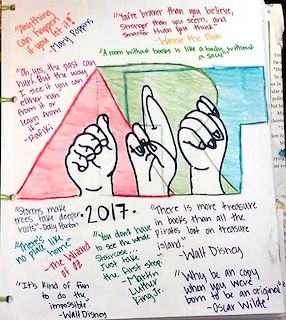 "Anything
can happen
if you let it!"
-Mary Poppins
"You're braver than you believe,
stronger than you seem, and
smarter than you think"
-Winnie the Pooh
"A room without books is like a body without
a soul"
"Oh yes, the past can
hurt. But the way
I see it you can
either run
from it or
learn from
it"
-Rafiki
"Storms make
trees take deeper
roots" -Dolly Parton
2017.
"There's
no place like
home"
-The Wizard
of OZ
"It's kind of fun
to do the
impossible"
-Walt Disney
"You don't have
to see the whole
staircase...
Just take
the first step."
-Martin
Luther
King Jr.
"There is more treasure
in books than all the
pirates loot on treasure
island."
-Walt Disney
"Why be an copy
when you were
born to be an original"
-Oscar Wilde